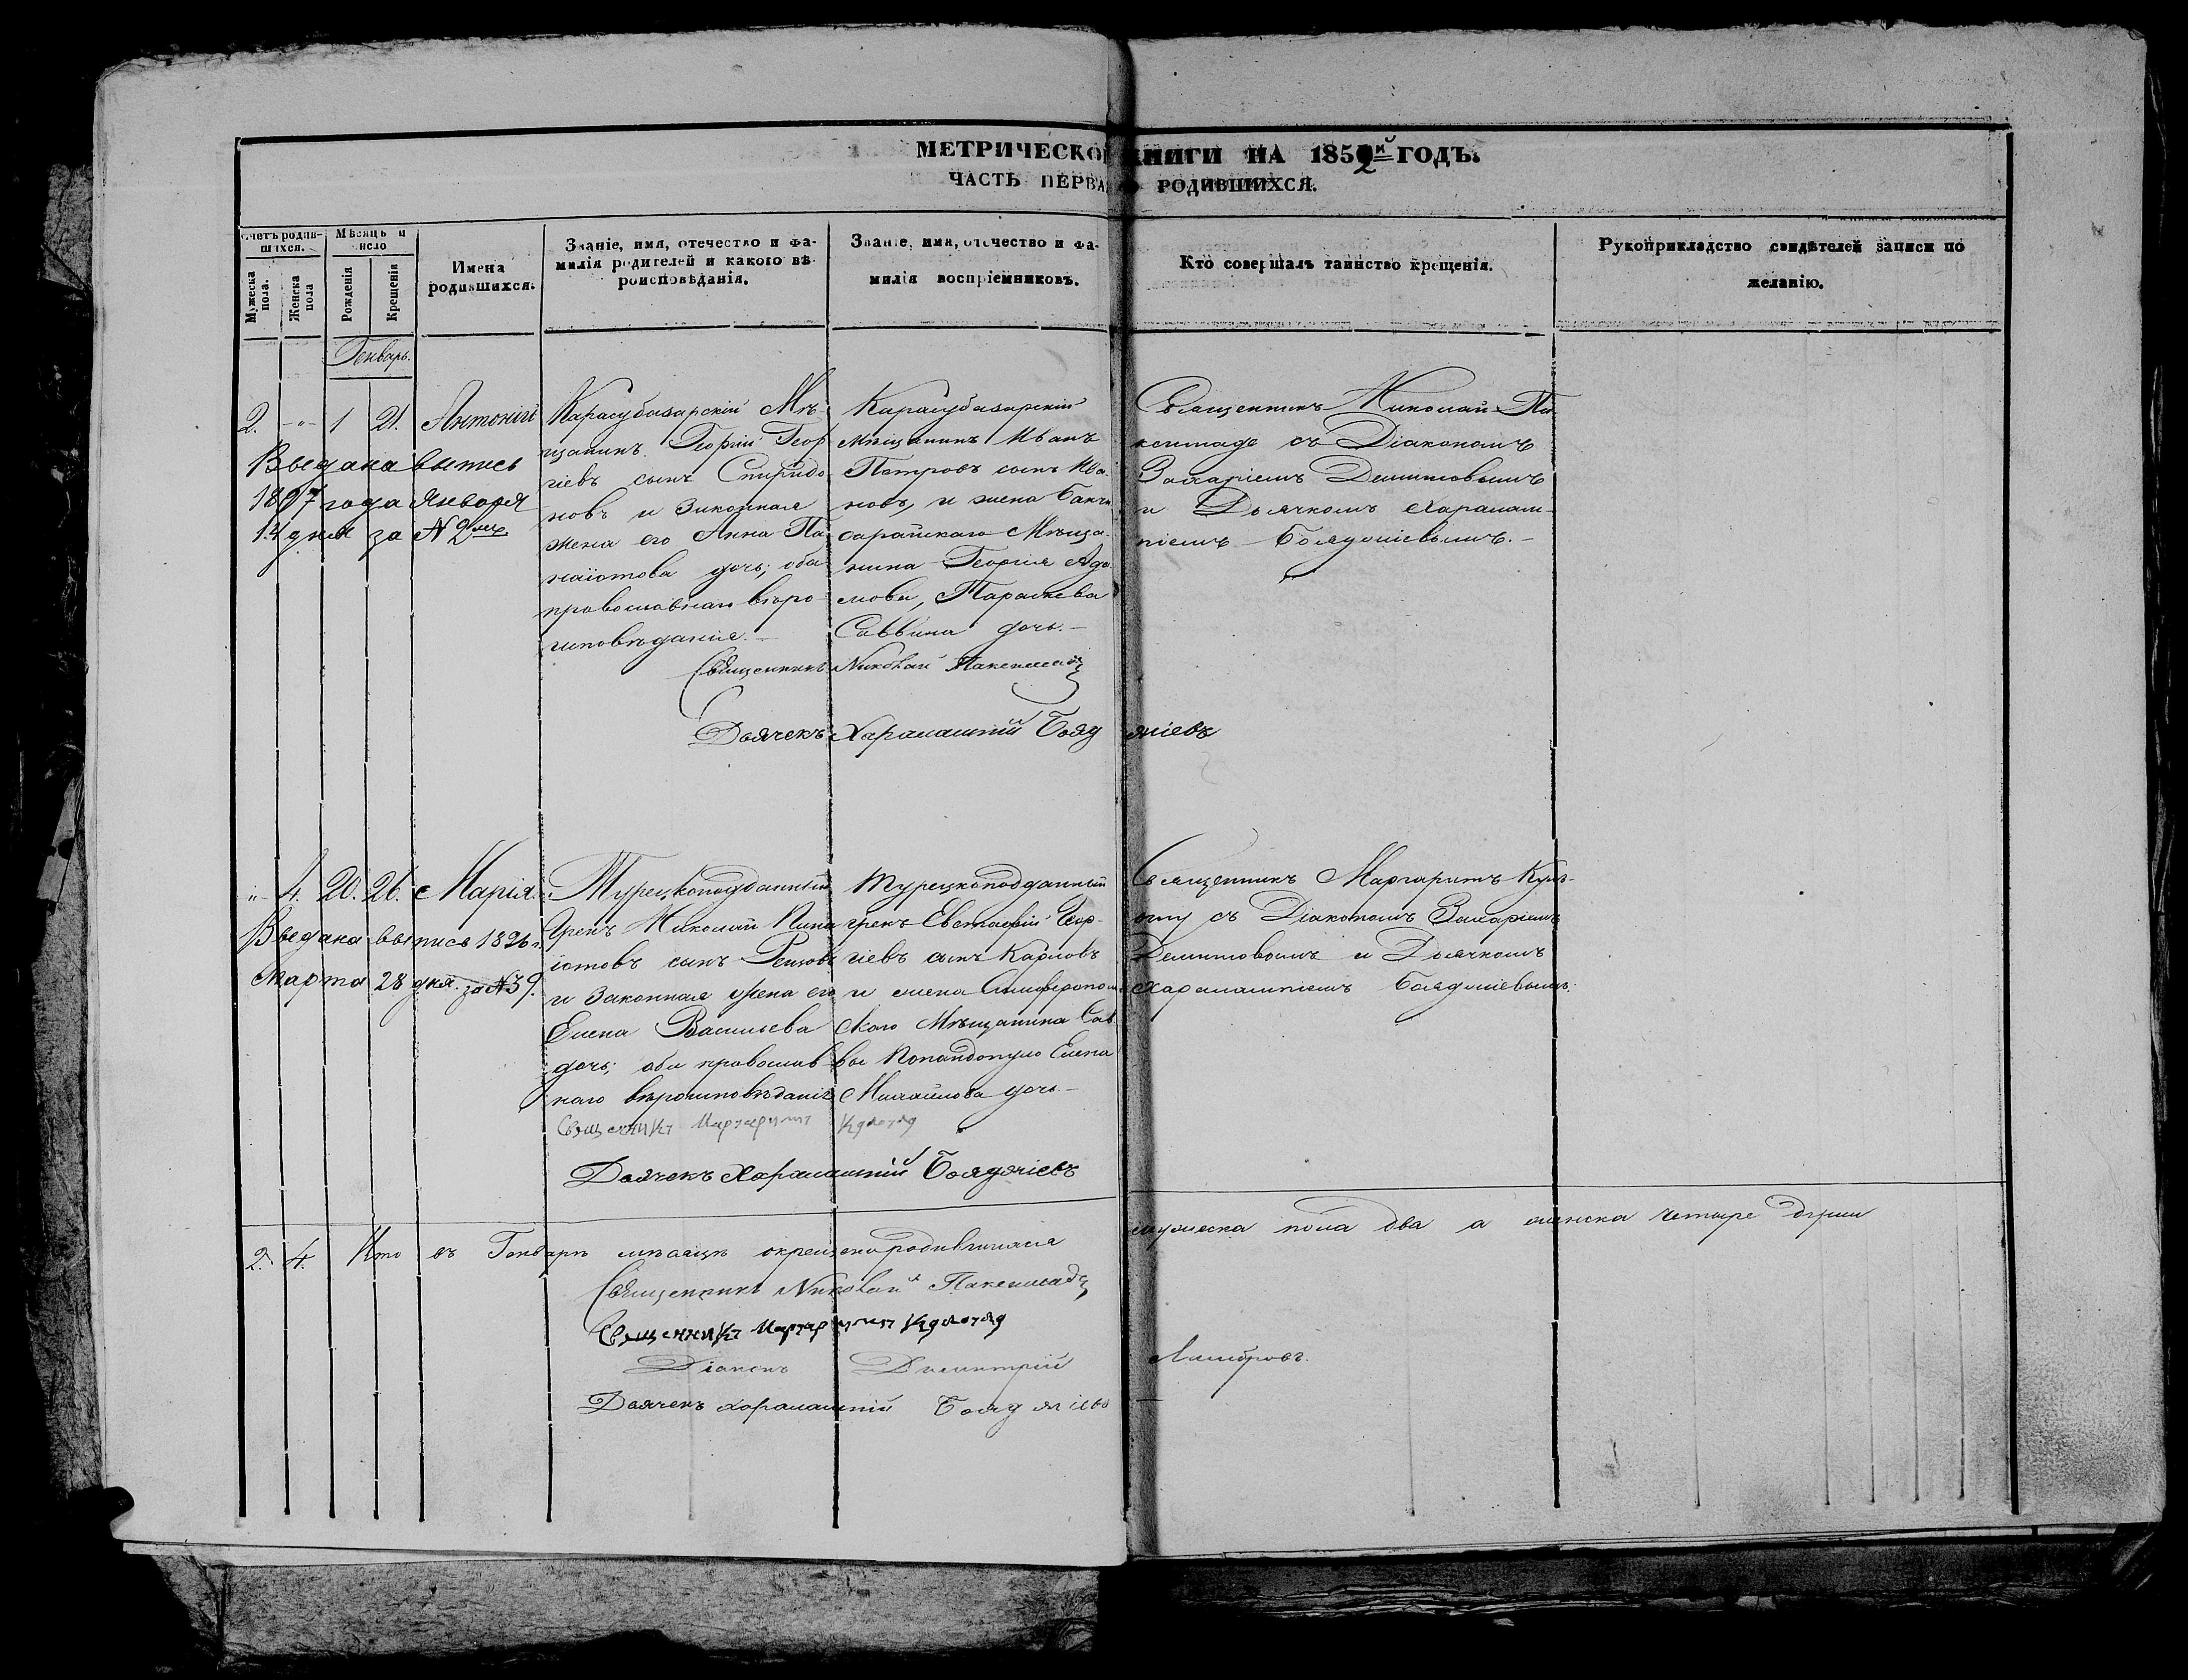 МЕТРИЧЕСКОЙ КНИГИ НА 1852й ГОДЪ.
ЧАСТЬ ПЕРВАЯ О РОДИВШИХСЯ.
Счетъ родившихся.
Мужеска пола.
Женска пола
Мѣсяцъ и число
Рожденія
Крещенія
Имена родившихся.
Званіе, имя, отечество и фамилія родителей и какого вѣроисповѣданія.
Званіе, имя, отечество и фамилія воспріемниковъ.
Кто совершалъ таинство крещенія.
Рукоприкладство свидѣтелей записи по желанію.
Генварь.
2. -„- 1 21. Антоній
Выдана выпись
1897 года Января
14 дня за N 2
Карасубазарскій Мѣ-
щанинъ Георгій Геор
гіевъ сынъ Спиридо
новъ и Законная
жена его Анна Па
наіотова дочь; оба
православнаго вѣро
исповѣданія. -
Карасубазарскій
Мѣщанинъ Иванъ
Петровъ сынъ Ива
новъ, и жена Бакчи
сарайскаго Мѣща-
нина Георгія Ада
мова, Параскева
Саввина дочь. -
Священникъ Николай Па
кентаде съ Діакономъ
Захаріемъ Демитовымъ
и Дьячкомъ Харалам-
піемъ Бояджіевымъ. -
Священникъ Николай
Дьячекъ Харалампій Бояджіевъ
-„- 4. 20. 26. Марія.
Выдана выпись 1896 г.
Марта 28 дня за N 39.
Турецкоподданный
Грекъ Николай Пана
іотовъ сынъ
и Законная жена его
Елена Васильева
дочь; оба православ
наго вѣроисповѣданія
Турецкоподданный
грекъ Евстафій Геор-
гіевъ сынъ Карповъ
и жена Симферополь
скаго Мѣщанина Сав
вы Попандопуло Елена
Михайлова дочь. -
Священникъ Маргаритъ
съ Діакономъ Захаріемъ
Демитовымъ и Дьячкомъ
Харалампіемъ Бояджіевымъ.
Священникъ Маргаритъ
Дьячекъ Харалампій Бояджіевъ
2. 4. Итого въ Генварѣ мѣсяцѣ окрещено родившихся мужеска пола два а женска четыре души
Священникъ Николай
Священникъ Маргаритъ
Діаконъ Димитрій
Дьячекъ Харалампій Бояджіевъ